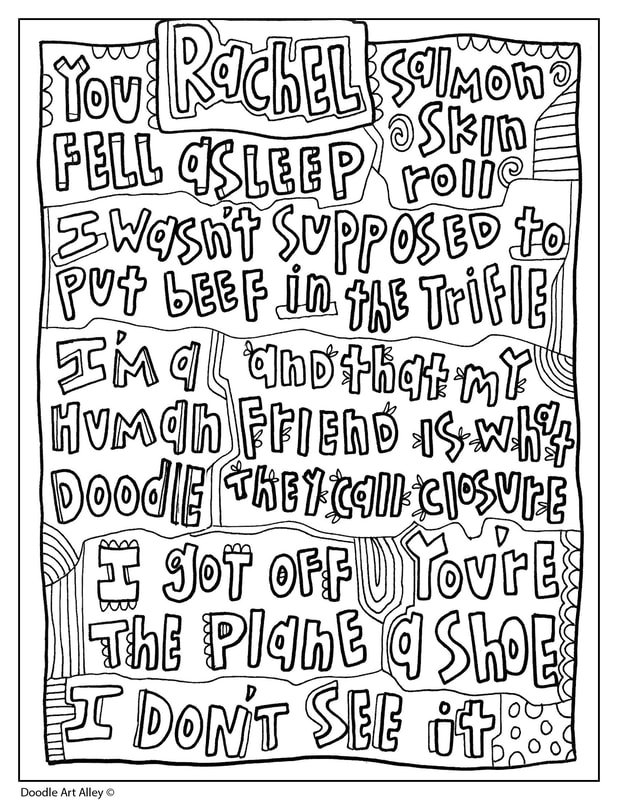 Rachel
You
fell asleep
Salmon
Skin
roll
I wasn't supposed to
put beef in the trifle
I'm a
human
doodle
and that my
friend is what
they call closure
I got off
the plane
You're
a shoe
I don't see it
Doodle Art Alley ©